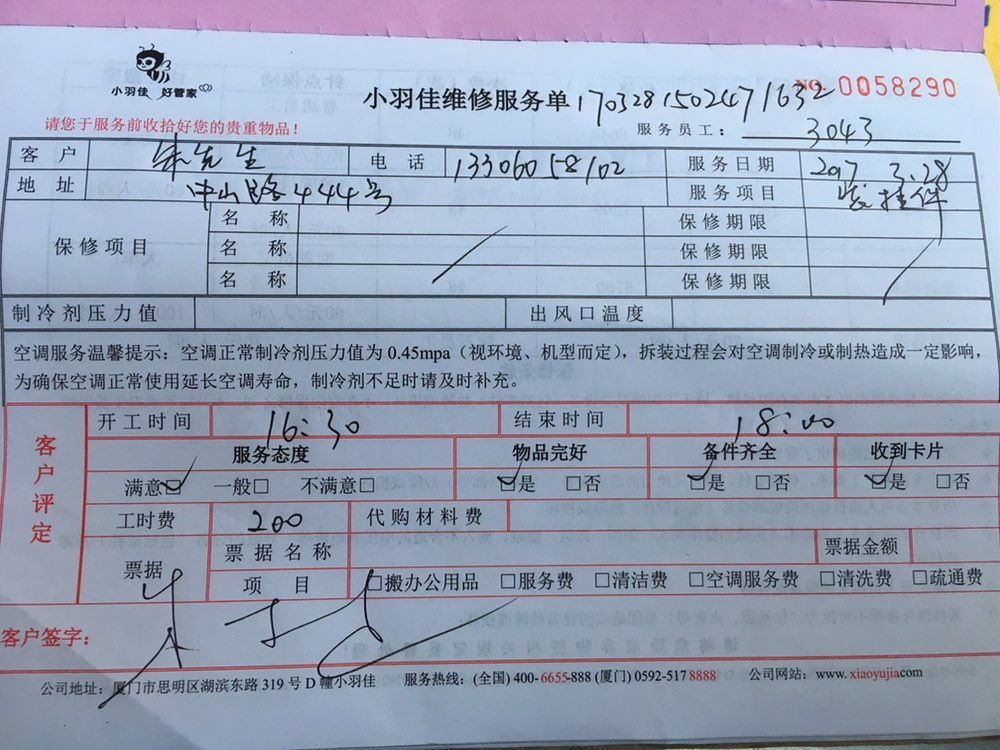 小羽佳 好管家
小羽佳维修服务单 170328150247 1632 NO.0058290
请您于服务前收拾好您的贵重物品！
服务员工： 3043
客户 朱先生 电话 13306058102 服务日期 2017 3.28
地址 中山路444号 服务项目 装挂件
保修项目 名称 保修期限
名称 保修期限
名称 保修期限
制冷剂压力值 出风口温度
空调服务温馨提示：空调正常制冷剂压力值为 0.45mpa（视环境、机型而定），拆装过程会对空调制冷或制热造成一定影响，
为确保空调正常使用延长空调寿命，制冷剂不足时请及时补充。
客户评定
开工时间 16:30 结束时间 18:00
服务态度 物品完好 备件齐全 收到卡片
满意☑ 一般□ 不满意□ ☑是 □否 ☑是 □否 ☑是 □否
工时费 200 代购材料费
票据 票据名称 票据金额
项目 □搬办公用品 □服务费 □清洁费 □空调服务费 □清洗费 □疏通费
客户签字：
公司地址：厦门市思明区湖滨东路 319 号 D 幢小羽佳 服务热线：(全国) 400-6655-888 (厦门) 0592-517 8888 公司网站：www.xiaoyujia.com